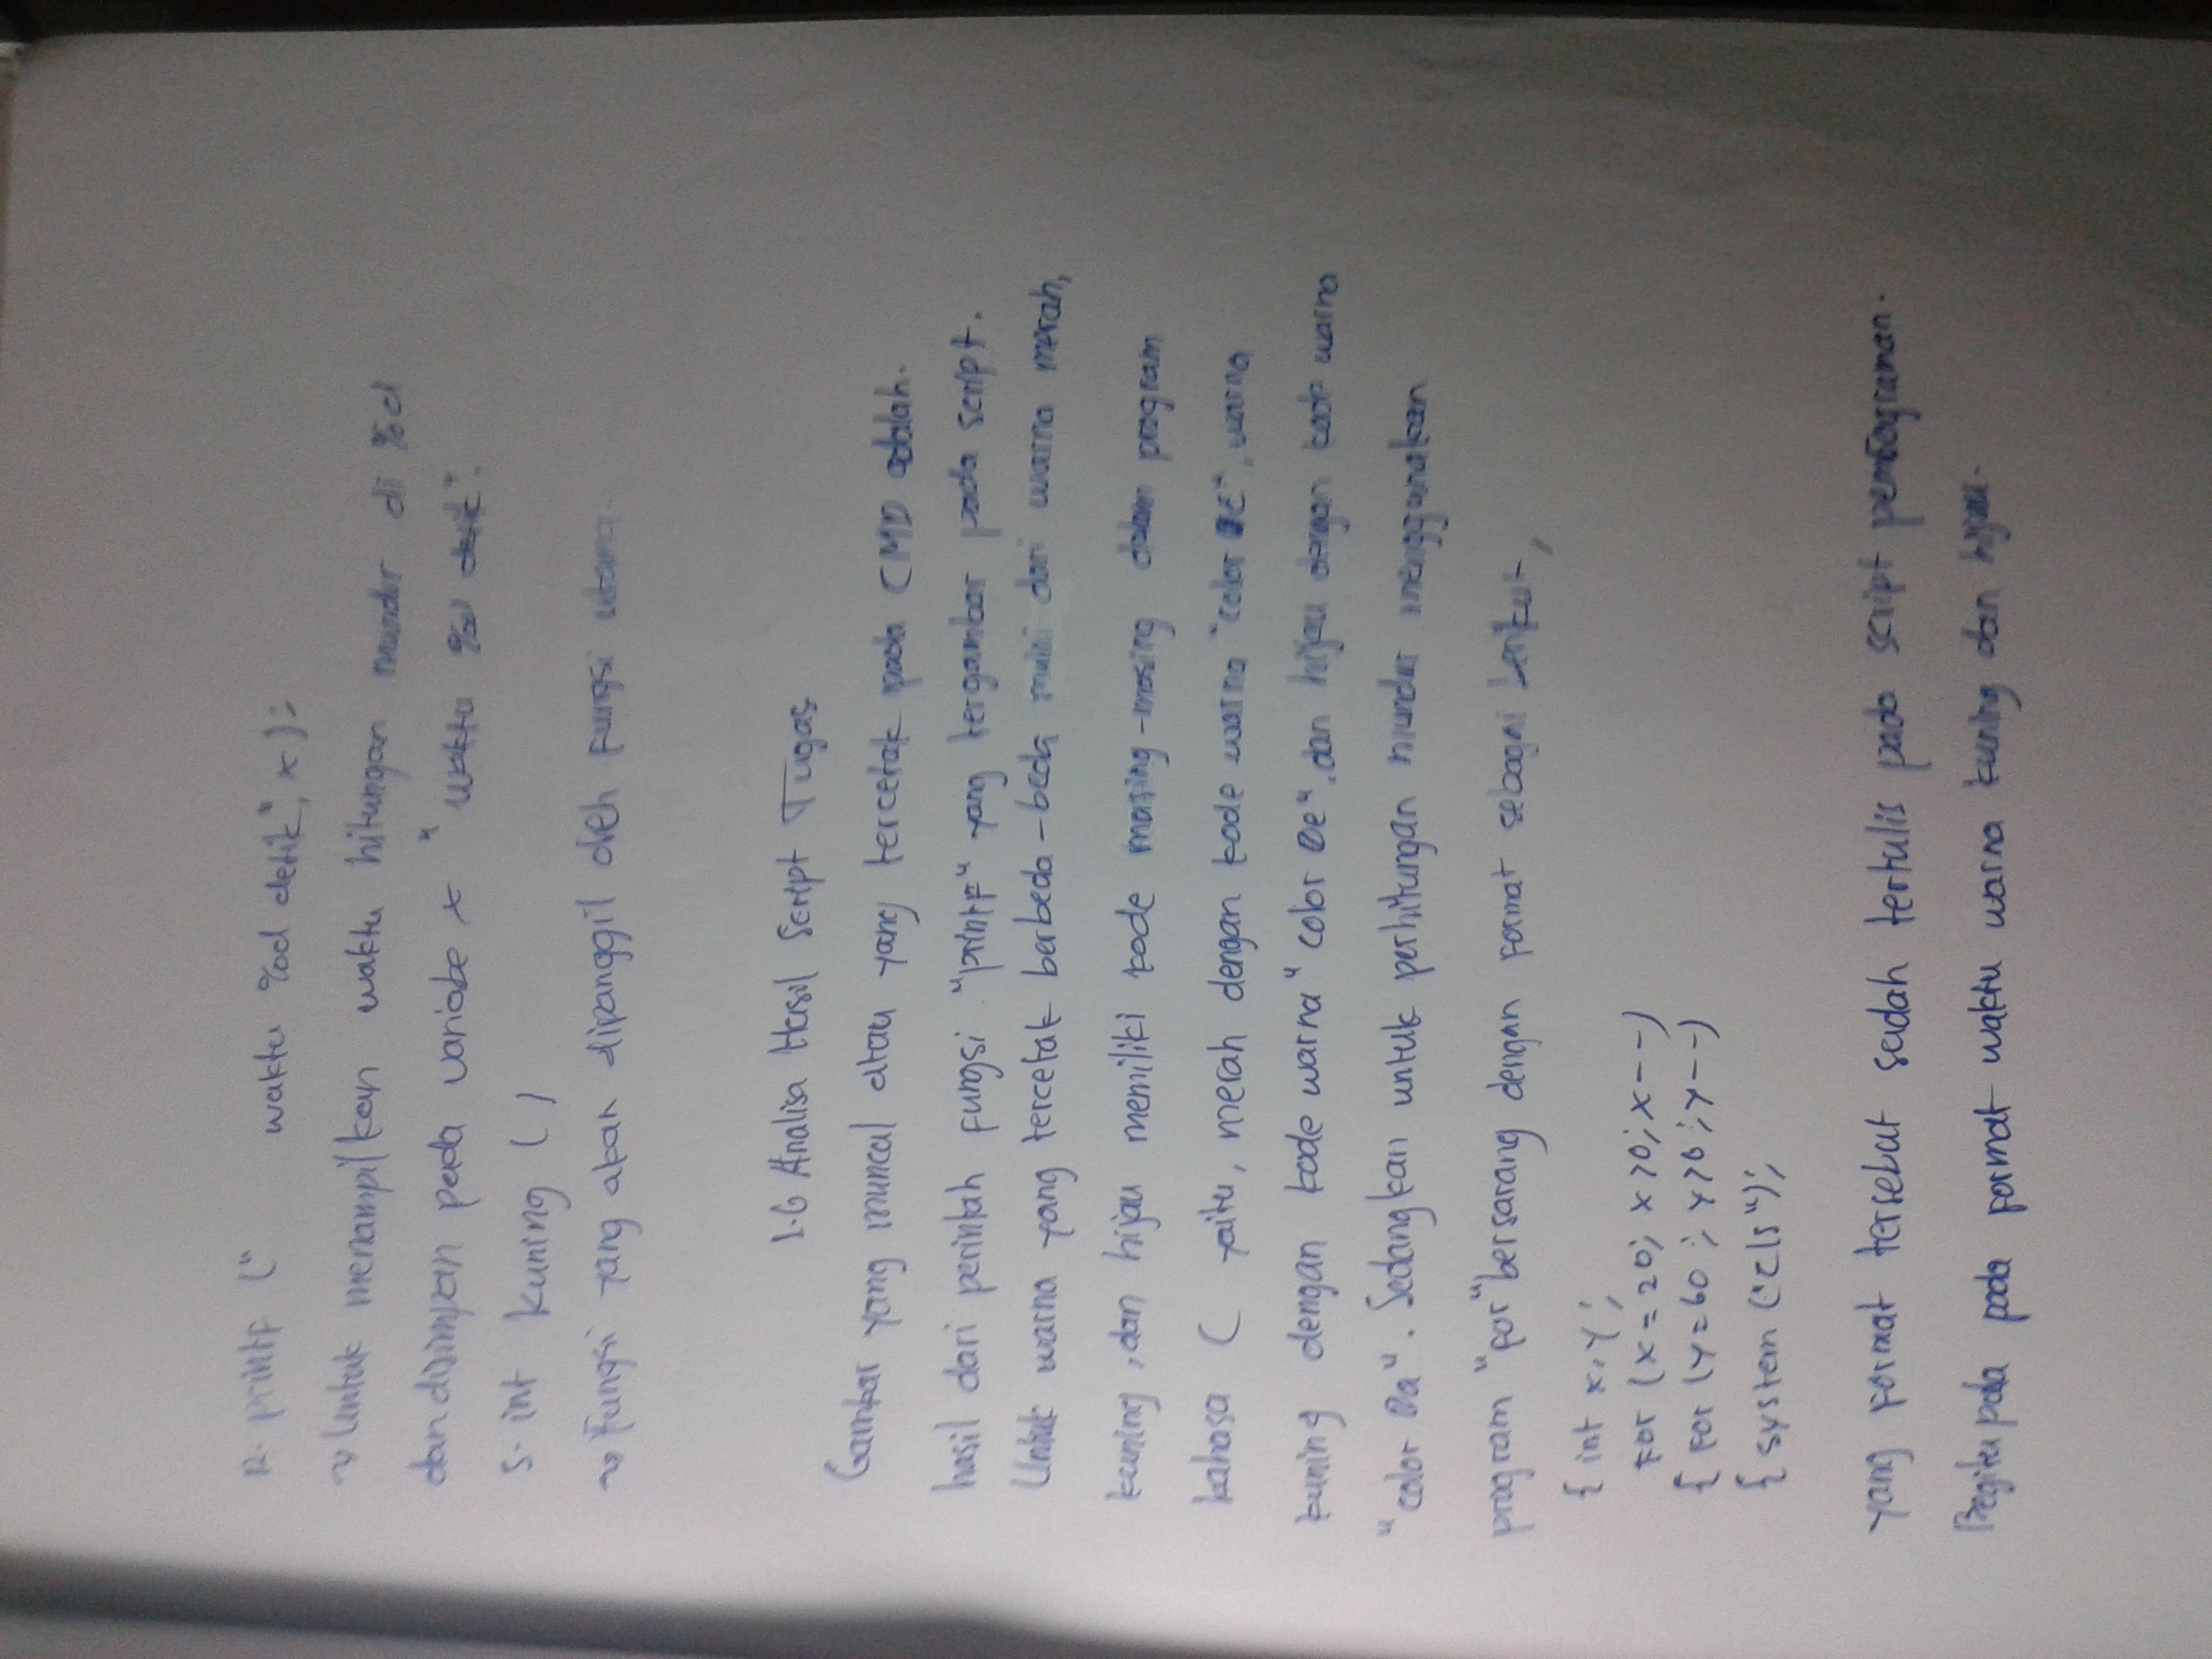 R. printf ("      waktu %d detik", x);
~> Untuk menampilkan waktu hitungan mundur di %d
dan disimpan pada variabe x "waktu %d detik".
S. int kuning ( )
~> Fungsi yang akan dipanggil oleh fungsi utama.
1.6 Analisa Hasil Script Tugas
Gambar yang muncul atau yang tercetak pada CMD adalah.
hasil dari perintah fungsi "printf" yang tergambar pada script.
Untuk warna yang tercetak berbeda-beda mulai dari warna merah,
kuning, dan hijau memiliki kode masing-masing dalam program
bahasa C yaitu, merah dengan kode warna "color", warna
kuning dengan kode warna "color 0e", dan hijau dengan kode warna
"color 0a". Sedangkan untuk perhitungan mundur menggunakan
program "for" bersarang dengan format sebagai berikut,
{ int x,y;
for (x=20; x>0; x--)
{ for (y=60; y>0; y--)
{ system ("cls");
yang format tersebut sudah tertulis pada script
Begitu pula pada format waktu warna kuning dan hijau.